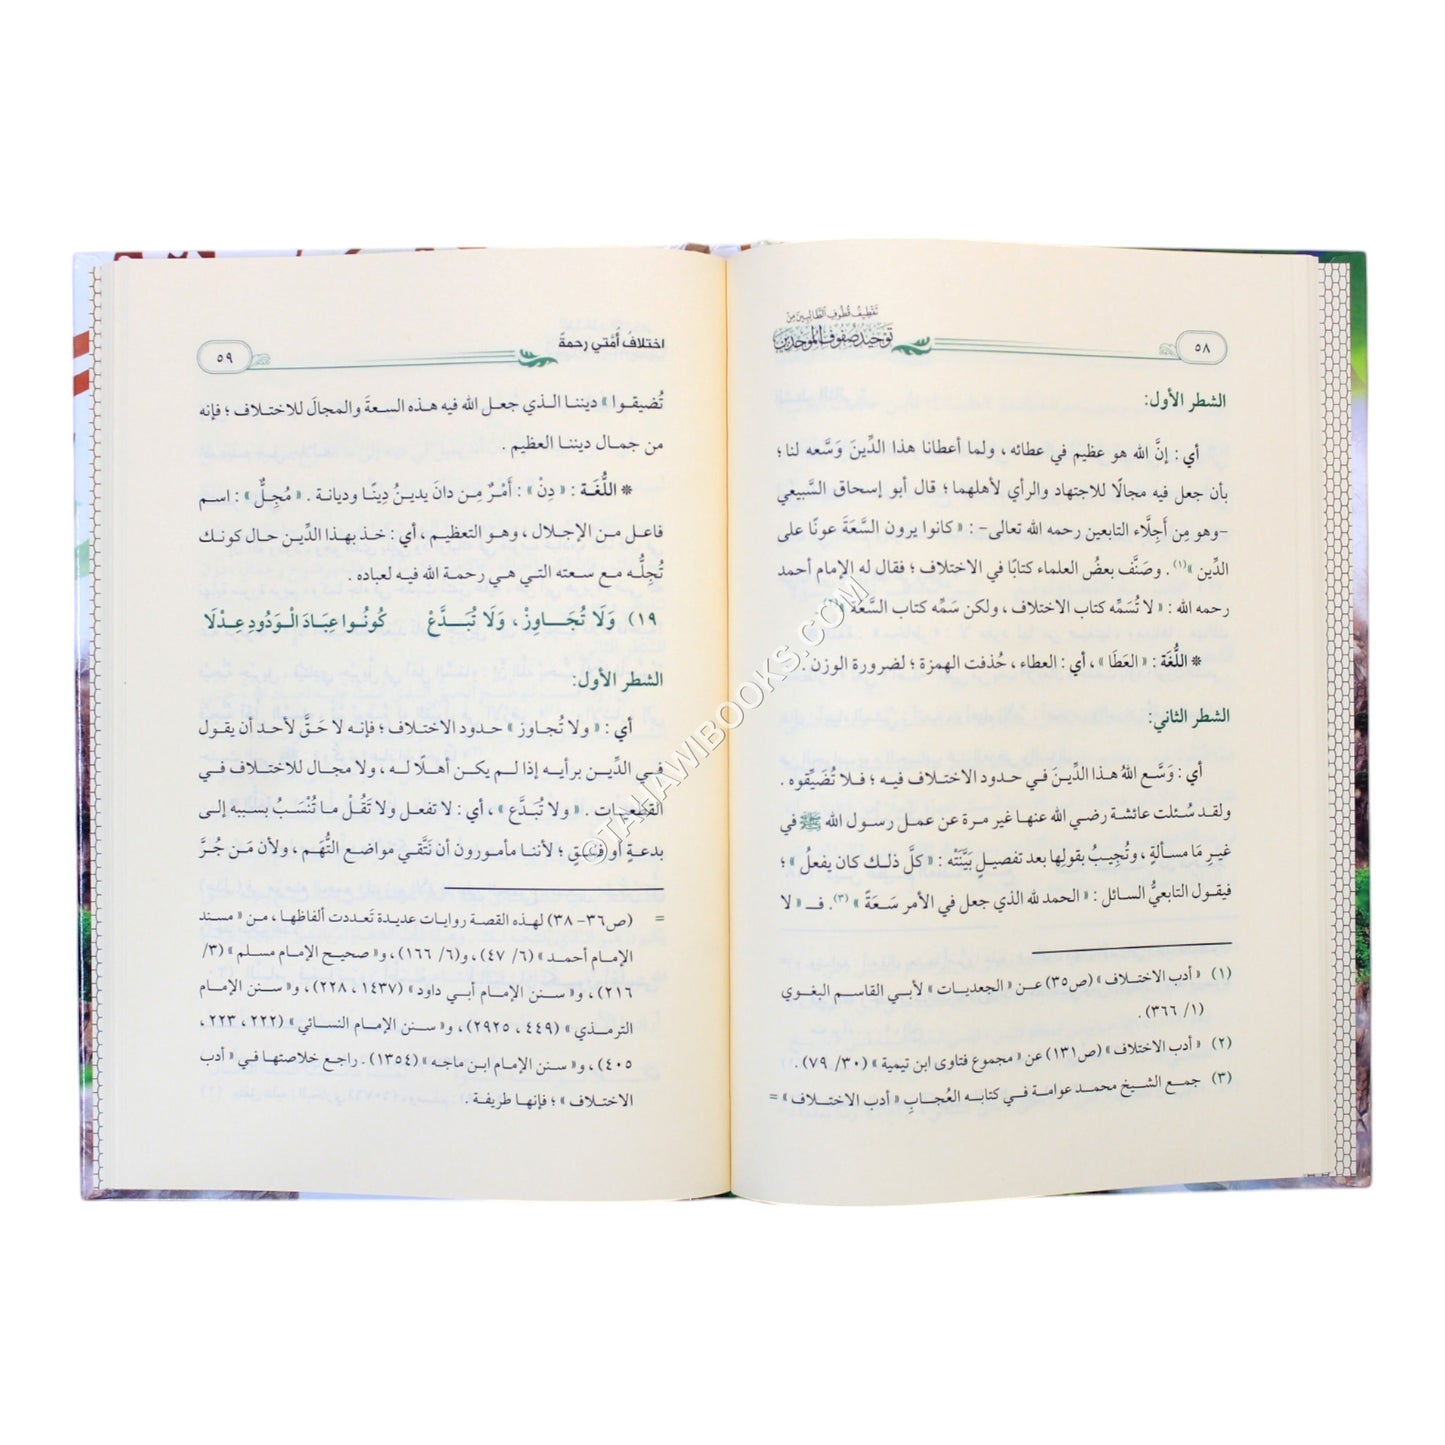 ٥٨
تقطيف قطوف الطالبين من
توحيد صفوف الموحدين
الشطر الأول:
أي : إنَّ الله هو عظيم في عطائه ، ولما أعطانا هذا الدِّينَ وَسَّعه لنا ؛
بأن جعل فيه مجالًا للاجتهاد والرأي لأهلهما ؛ قال أبو إسحاق السَّبيعي
-وهو مِن أَجِلَّاء التابعين رحمه الله تعالى- : « كانوا يرون السَّعَةَ عونًا على
الدِّين »(١) . وصَنَّف بعضُ العلماء كتابًا في الاختلاف ؛ فقال له الإمام أحمد
رحمه الله : « لا تُسَمِّه كتاب الاختلاف ، ولكن سَمِّه كتاب السَّعَة »(٢).
* اللُّغَة : « العَطَا » ، أي : العطاء ، حُذفت الهمزة ؛ لضرورة الوزن .
الشطر الثاني:
أي : وَسَّع اللهُ هذا الدِّينَ في حدود الاختلاف فيه ؛ فلا تُضَيِّقوه .
ولقد سُئلت عائشة رضي الله عنها غير مرة عن عمل رسول الله ﷺ في
غيرِ مَا مسألةٍ ، وتُجِيبُ بقولِها بعد تفصيلٍ بَيَّنَتْه : « كلَّ ذلك كان يفعلُ » ؛
فيقول التابعيُّ السائل : « الحمد لله الذي جعل في الأمر سَعَةً »(٣). فـ « لا
(١) « أدب الاختلاف » (ص٣٥) عن « الجعديات » لأبي القاسم البغوي
(١/ ٣٦٦) .
(٢) « أدب الاختلاف » (ص١٣١) عن « مجموع فتاوى ابن تيمية » (٣٠/ ٧٩) .
(٣) جمع الشيخ محمد عوامة في كتابه العُجابِ « أدب الاختلاف » =
اختلافُ أمَّتي رحمةً
٥٩
تُضيقوا » ديننا الذي جعل الله فيه هذه السعةَ والمجالَ للاختلاف ؛ فإنه
من جمال ديننا العظيم .
* اللُّغَة : « دِنْ » : أَمْرٌ مِن دانَ يدينُ دِينًا وديانة . « مُجِلٌّ » : اسم
فاعل من الإجلال ، وهو التعظيم ، أي : خذ بهذا الدِّين حال كونك
تُجِلُّه مع سعته التي هي رحمة الله فيه لعباده .
١٩) وَلَا تُجَاوِزْ ، وَلَا تُبَدَّعْ كُونُوا عِبَادَ الْوَدُودِ عِدْلَا
الشطر الأول:
أي : « ولا تُجاوز » حدود الاختلاف ؛ فإنه لا حَقَّ لأحد أن يقول
في الدِّين برأيه إذا لم يكن أهلًا له ، ولا مجال للاختلاف في
القطعيات . « ولا تُبَدَّع » ، أي : لا تفعل ولا تَقُلْ ما تُنْسَبُ بسببه إلى
بدعةٍ أو فسقٍ ؛ لأننا مأمورون أن نَتَّقي مواضع التُّهَم ، ولأن مَن جُرَّ
= (ص٣٦- ٣٨) لهذه القصة روايات عديدة تَعددت ألفاظها ، من « مسند
الإمام أحمد » (٦/ ٤٧) ، و(٦/ ١٦٦) ، و« صحيح الإمام مسلم » (٣/
٢١٦) ، و« سنن الإمام أبي داود » (١٤٣٧ ، ٢٢٨) ، و« سنن الإمام
الترمذي » (٤٤٩ ، ٢٩٢٥) ، و« سنن الإمام النسائي » (٢٢٢ ، ٢٢٣ ،
٤٠٥) ، و« سنن الإمام ابن ماجه » (١٣٥٤) . راجع خلاصتها في « أدب
الاختلاف » ؛ فإنها طريفة .
©TAHAWIBOOKS.COM